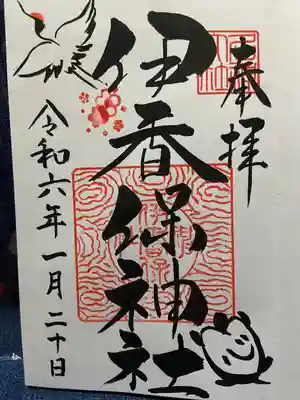 奉拝
伊香保神社
令和六年一月二十日